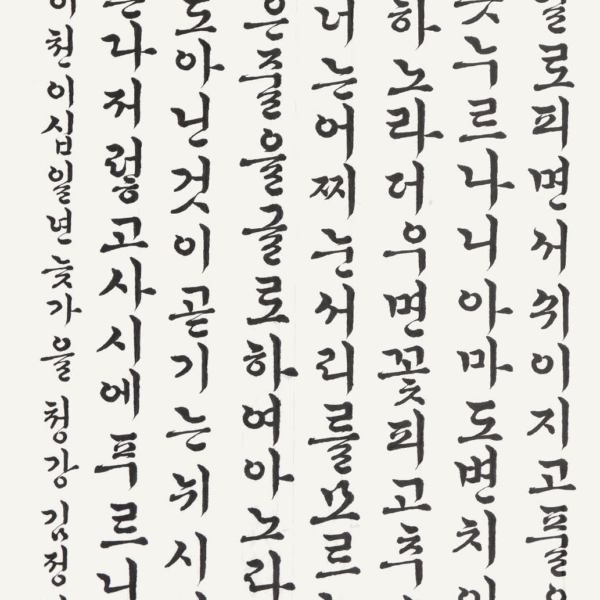 로피면서쉬이지고풀
누르나니아마도변치
하노라더우면꽃피고추
너는어찌눈서리를모르
은줄을글로하여아노라
도아닌것이곧기는뉘시
다저렇고사시에푸르니
천이십일년늦가을청강김정